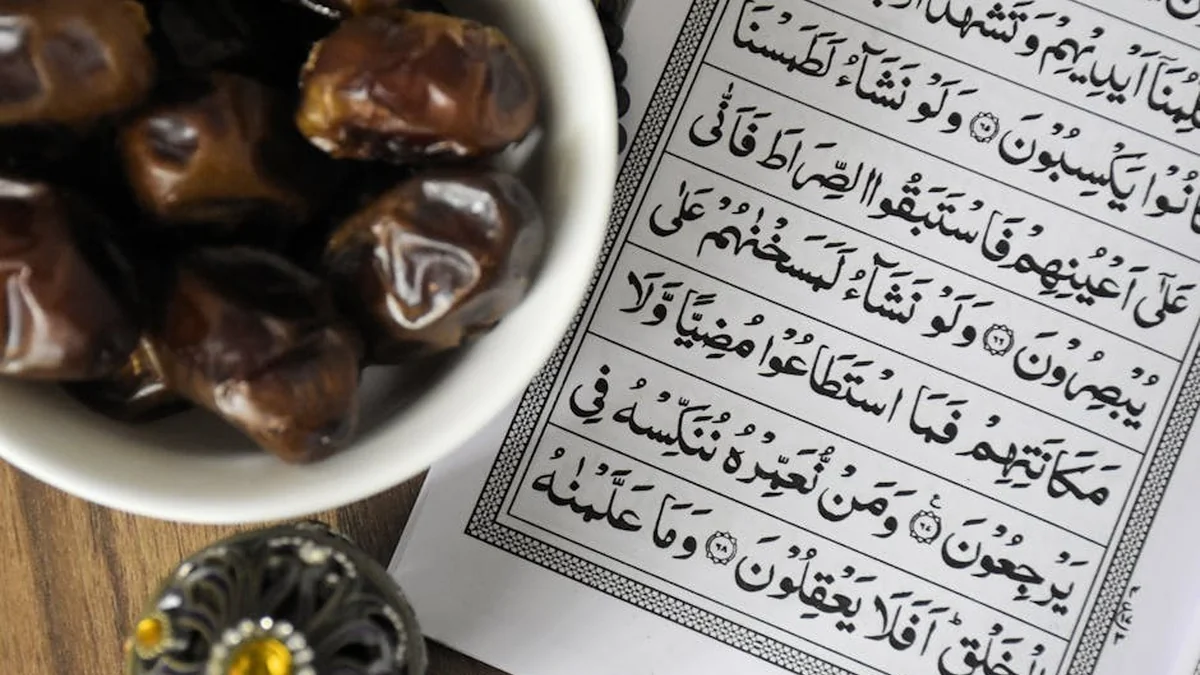 اَيْدِيْهِمْ وَتَشْهَدُ
انُوْا يَكْسِبُوْنَ ۝٦٥ وَلَوْ نَشَآءُ لَطَمَسْنَا
عَلٰٓى اَعْيُنِهِمْ فَاسْتَبَقُوا الصِّرَاطَ فَاَنّٰى
يُبْصِرُوْنَ ۝٦٦ وَلَوْ نَشَآءُ لَمَسَخْنٰهُمْ عَلٰى
مَكَانَتِهِمْ فَمَا اسْتَطَاعُوْا مُضِيًّا وَّلَا
يَرْجِعُوْنَ ۝٦٧ وَمَنْ نُّعَمِّرْهُ نُنَكِّسْهُ فِى
الْخَلْقِ ؕ اَفَلَا يَعْقِلُوْنَ ۝٦٨ وَمَا عَلَّمْنٰهُ